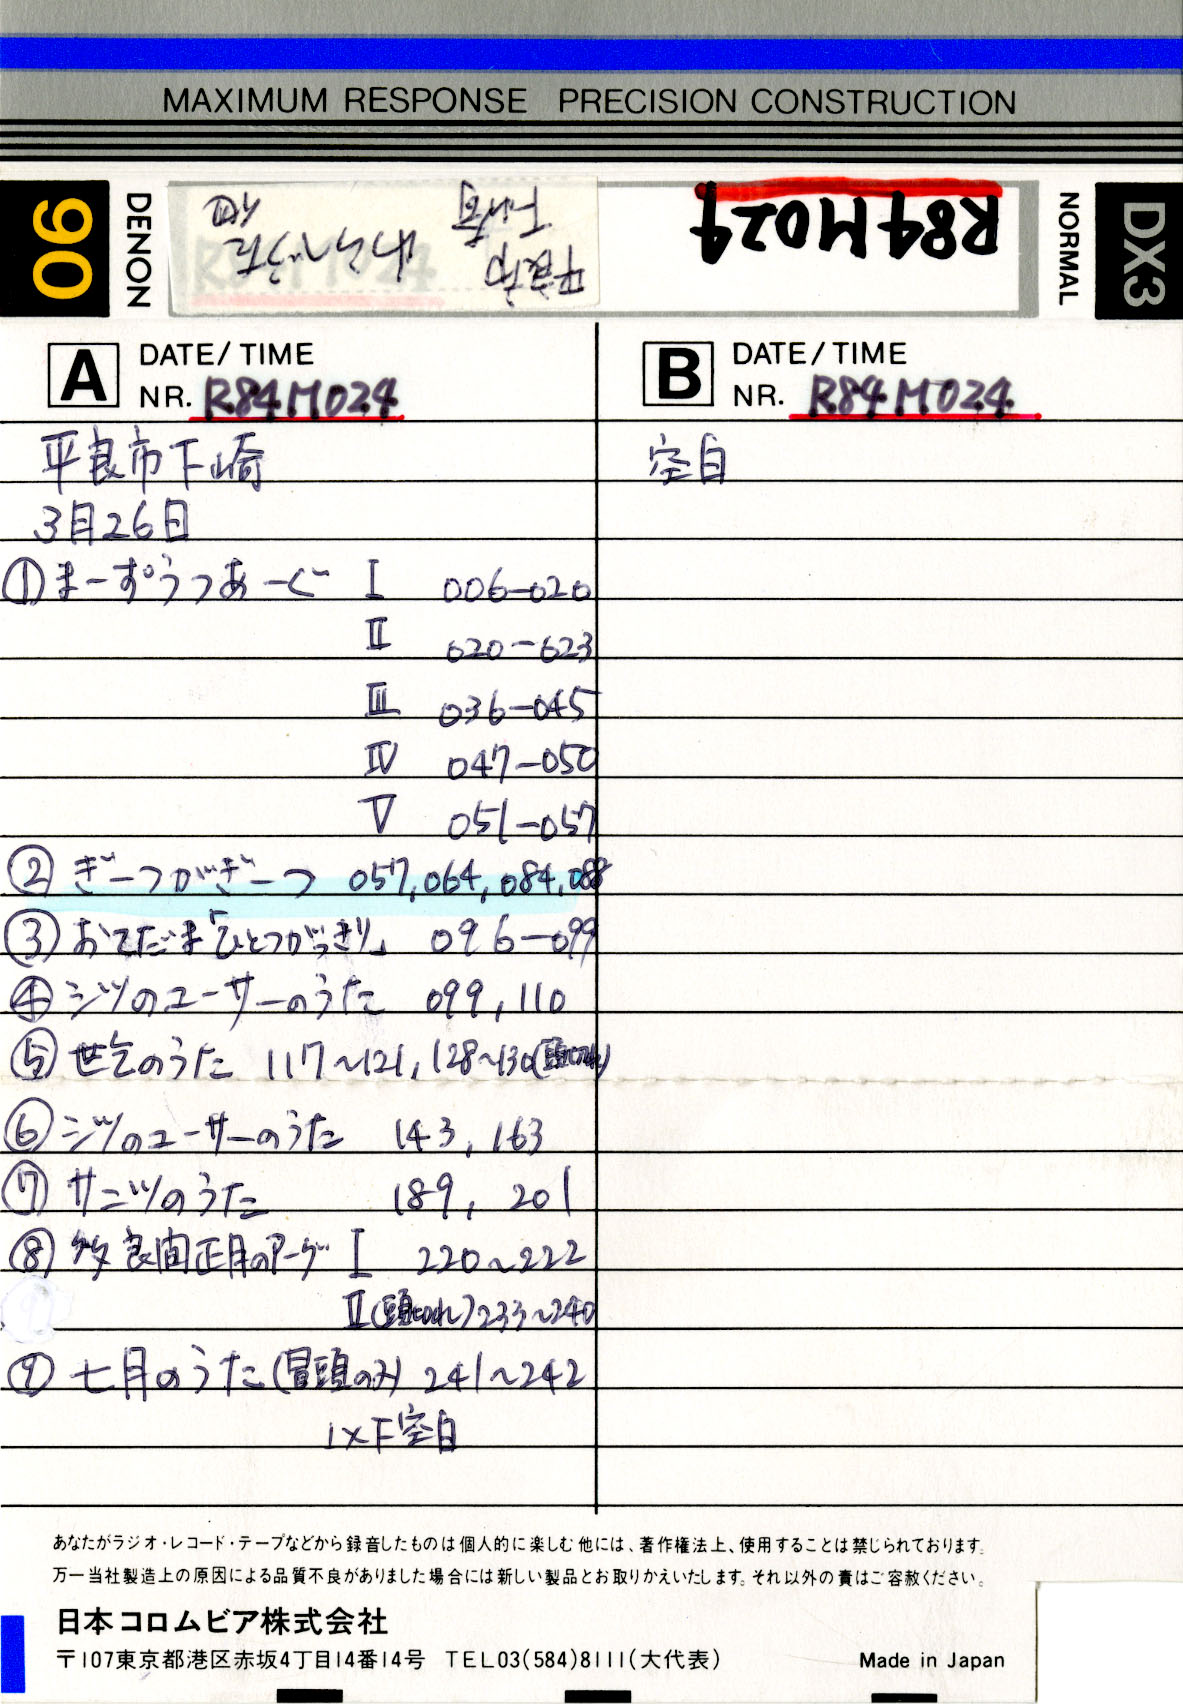 MAXIMUM RESPONSE PRECISION CONSTRUCTION
90
DENON
平良市
下崎
わらべうた
他
R84M024
NORMAL
DX3
A DATE/TIME
NR. R84M024
平良市下崎
3月26日
①まーす゚うつあーぐ I 006-020
II 020-023
III 036-045
IV 047-050
V 051-057
②ぎーつがぎーつ 057,064,084,088
③おてだま「ひとつがっきり」 096-099
④ジツのユーサーのうた 099,110
⑤世乞のうた 117~121,128~130(頭切れ)
⑥ジツのユーサーのうた 143,163
⑦サニツのうた 189, 201
⑧多良間正月のアーグ I 220~222
II(頭切れ)233~240
⑨七月のうた(冒頭のみ)241~242
以下空白
B DATE/TIME
NR. R84M024
空白
あなたがラジオ・レコード・テープなどから録音したものは個人的に楽しむ他には、著作権法上、使用することは禁じられております。
万一当社製造上の原因による品質不良がありました場合には新しい製品とお取りかえいたします。それ以外の責はご容赦ください。
日本コロムビア株式会社
〒107東京都港区赤坂4丁目14番14号 TEL03(584)8111(大代表)
Made in Japan